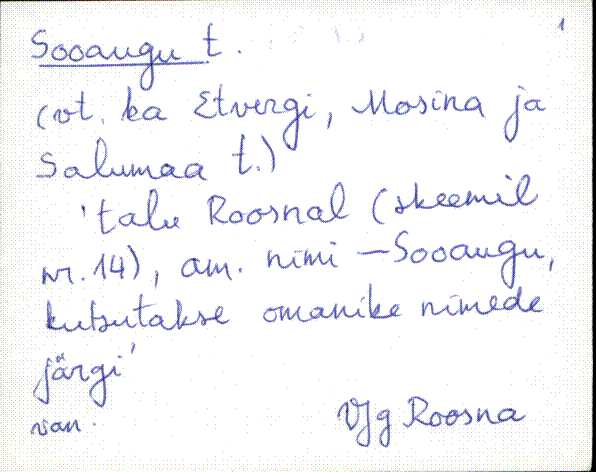 1
Sooaugu t.
(vt. ka Etvergi, Mosina ja
Salumaa t.)
'talu Roosnal (skeemil
nr. 14), am. nimi – Sooaugu,
kutsutakse omanike nimede
järgi'
van.
VJg Roosna